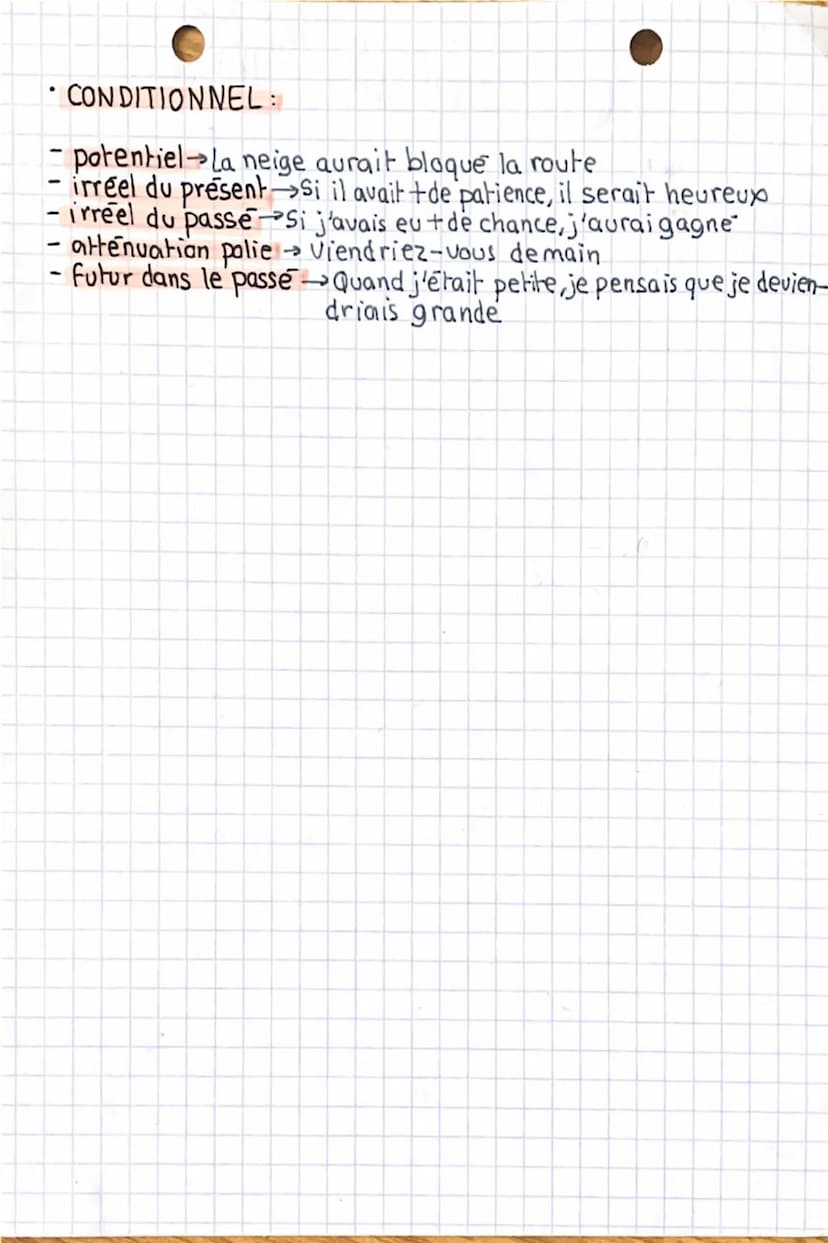 · CONDITIONNEL :
- potentiel → La neige aurait bloqué la route
- irréel du présent → Si il avait + de patience, il serait heureux
- irréel du passé → Si j'avais eu + de chance, j'aurai gagné
- atténuation polie → Viendriez-vous demain
- futur dans le passé → Quand j'était petite, je pensais que je devien-
driais grande